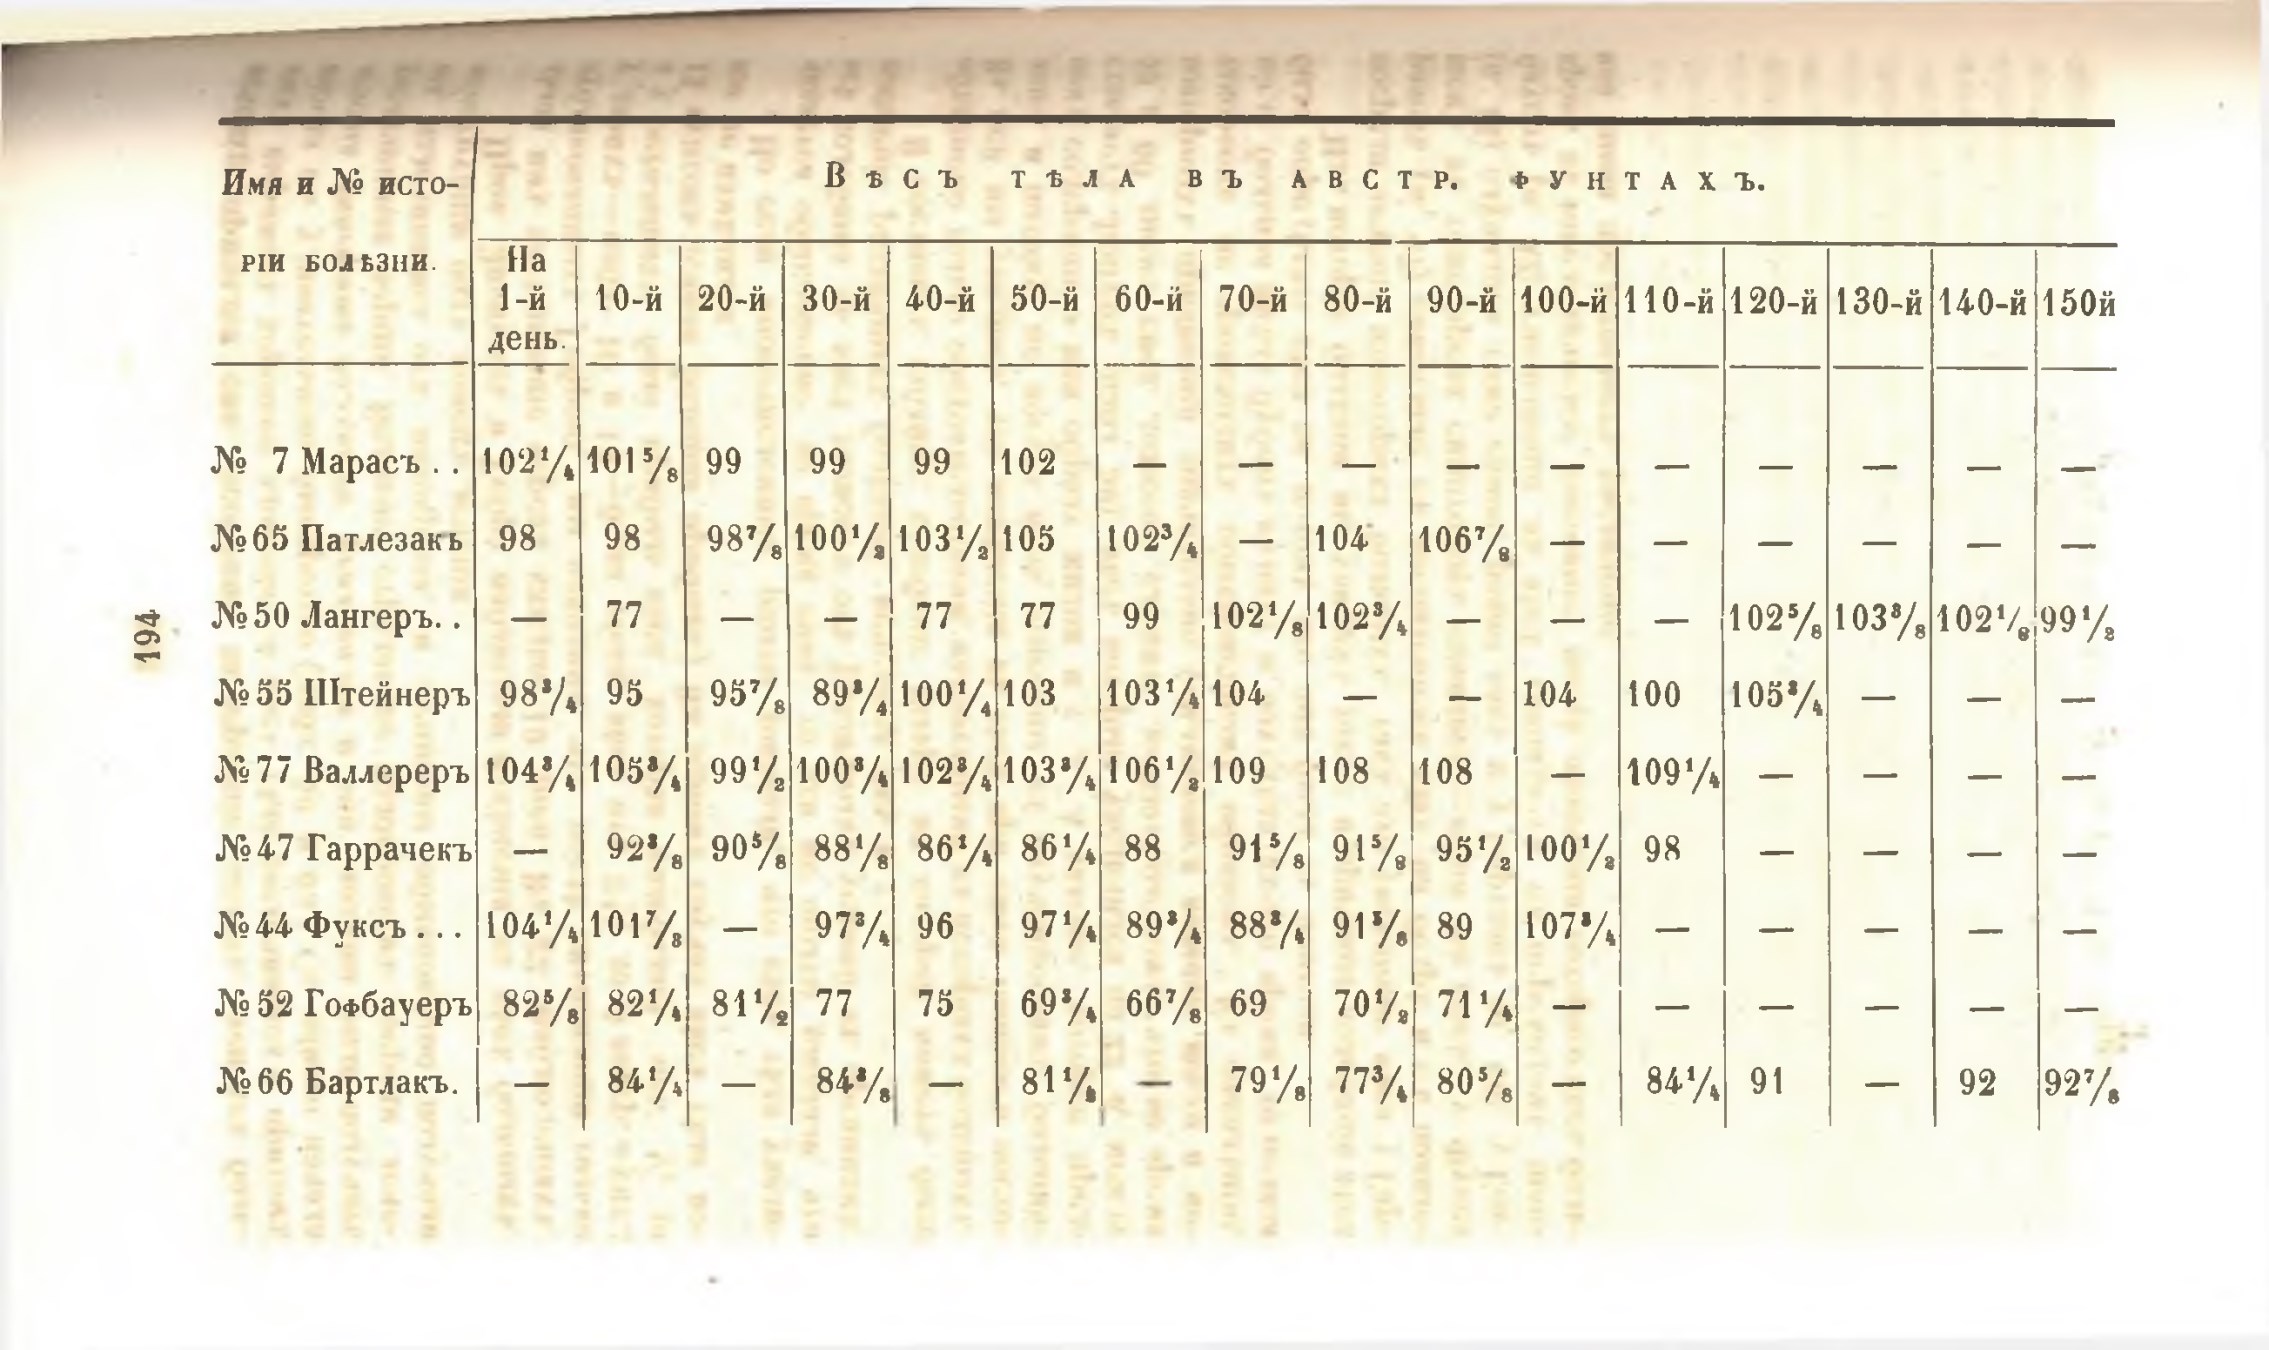 Имя и № исто-
ріи болѣзни.
Вѣсъ тѣла въ австр. фунтахъ.
На 1-й день. 10-й 20-й 30-й 40-й 50-й 60-й 70-й 80-й 90-й 100-й 110-й 120-й 130-й 140-й 150й
№ 7 Марасъ . . 102¹/₄ 101⁵/₈ 99 99 99 102 — — — — — — — — — —
№ 65 Патлезакъ 98 98 98⁷/₈ 100¹/₂ 103¹/₂ 105 102³/₄ — 104 106⁷/₈ — — — — — —
№ 50 Лангеръ. . — 77 — — 77 77 99 102¹/₈ 102³/₄ — — — 102⁵/₈ 103³/₈ 102¹/₈ 99¹/₂
№ 55 Штейнеръ 98³/₄ 95 95⁷/₈ 89³/₄ 100¹/₄ 103 103¹/₄ 104 — — 104 100 105³/₄ — — —
№ 77 Валлереръ 104³/₄ 105³/₄ 99¹/₂ 100³/₄ 102³/₄ 103³/₄ 106¹/₂ 109 108 108 — 109¹/₄ — — — —
№ 47 Гаррачекъ — 92³/₈ 90⁵/₈ 88¹/₈ 86¹/₄ 86¹/₄ 88 91⁵/₈ 91⁵/₈ 95¹/₂ 100¹/₂ 98 — — — —
№ 44 Фуксъ . . . 104¹/₄ 101⁷/₈ — 97³/₄ 96 97¹/₄ 89³/₄ 88³/₄ 91⁵/₈ 89 107³/₄ — — — — —
№ 52 Гофбауеръ 82⁵/₈ 82¹/₄ 81¹/₂ 77 75 69³/₄ 66⁷/₈ 69 70¹/₂ 71¹/₄ — — — — — —
№ 66 Бартлакъ. — 84¹/₄ — 84³/₈ — 81¹/₈ — 79¹/₈ 77³/₄ 80⁵/₈ — 84¹/₄ 91 — 92 92⁷/₈
194